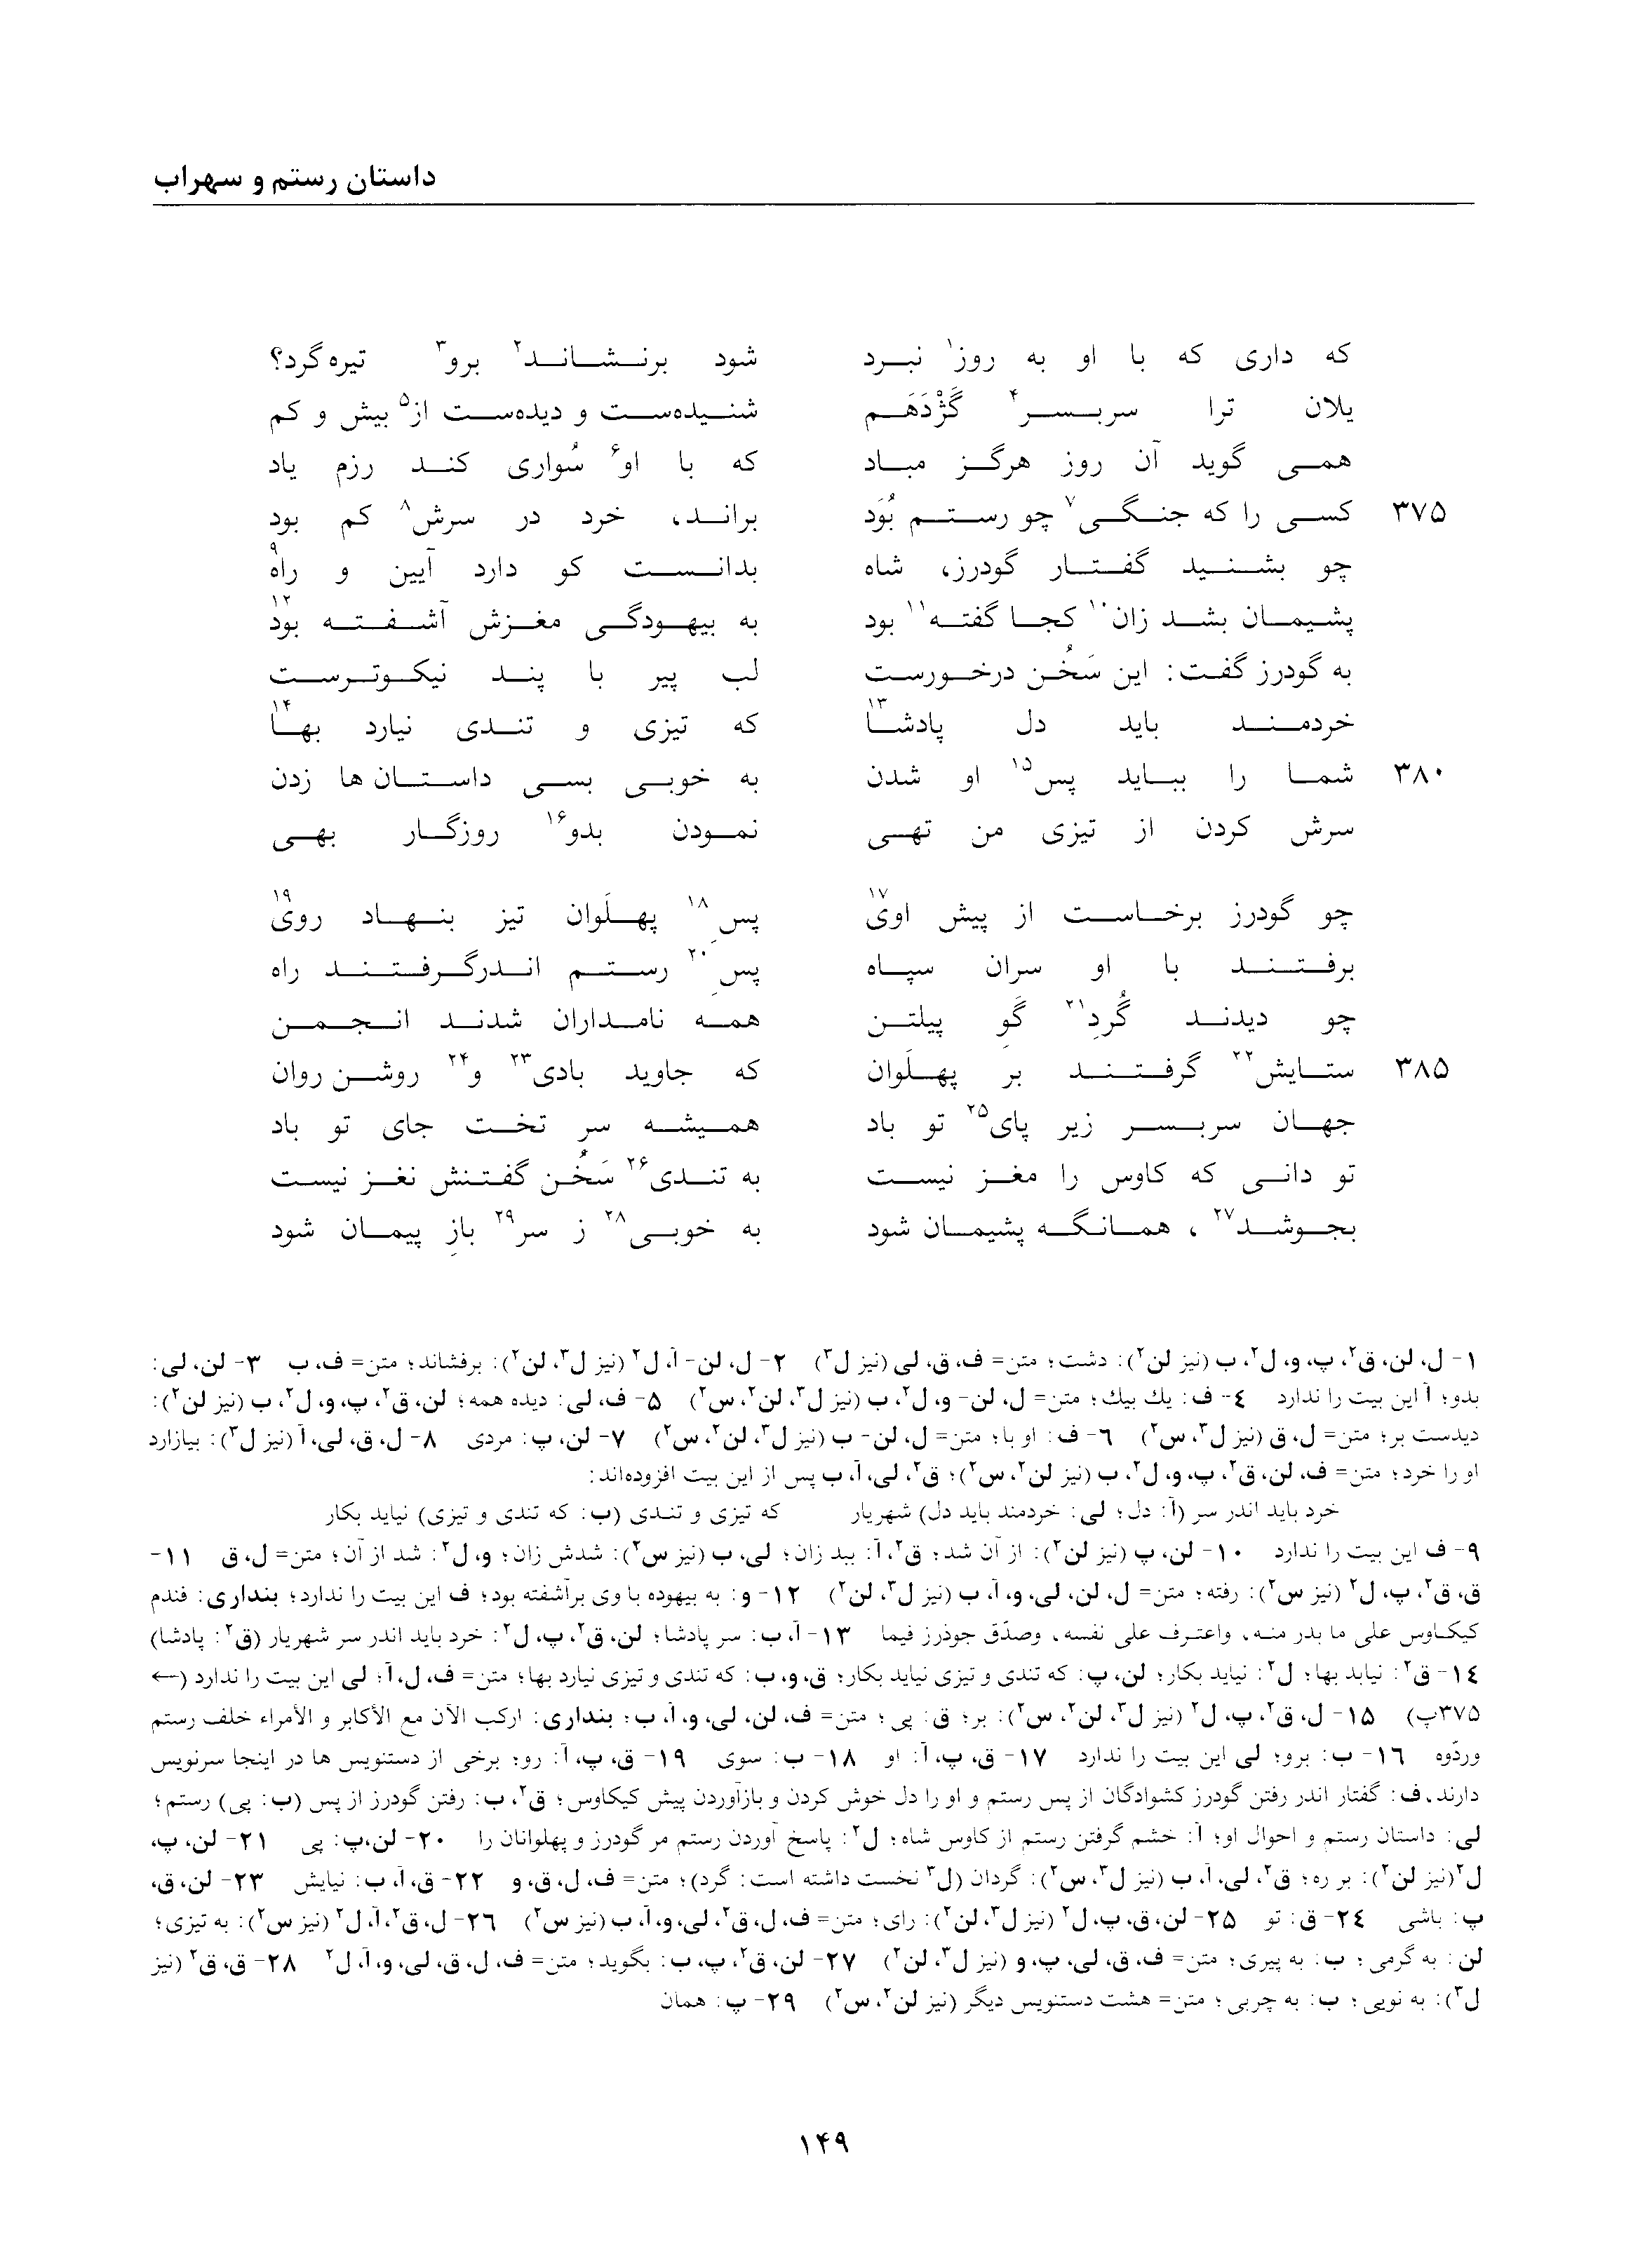 داستان رستم و سهراب
که داری که با او به روز۱ نبرد شود برنشاند۲ برو۳ تیره گرد؟
یلان ترا سربسر۴ گَژْدَهَم شنیده‌ست و دیده‌ست از۵ بیش و کم
همی گوید آن روز هرگز مباد که با او۶ سُواری کند رزم یاد
۳۷۵ کسی را که جنگی۷ چو رستم بُوَد براند، خرد در سرش۸ کم بود
چو بشنید گفتار گودرز، شاه بدانست کو دارد آیین و راه۹
پشیمان بشد زان۱۰ کجا گفته۱۱ بود به بیهودگی مغزش آشفته بود۱۲
به گودرز گفت: این سَخُن درخورست لب پیر با پند نیکوترست
خردمند باید دل پادشا۱۳ که تیزی و تندی نیارد بها۱۴
۳۸۰ شما را بباید پس۱۵ او شدن به خوبی بسی داستان‌ها زدن
سرش کردن از تیزی من تهی نمودن بدو۱۶ روزگار بهی
چو گودرز برخاست از پیش اوی۱۷ پسِ۱۸ پهلَوان تیز بنهاد روی۱۹
برفتند با او سران سپاه پسِ۲۰ رستم اندرگرفتند راه
چو دیدند گُردِ۲۱ گَوِ پیلتن همه نامداران شدند انجمن
۳۸۵ ستایش۲۲ گرفتند بر پهلَوان که جاوید بادی۲۳ و۲۴ روشن‌روان
جهان سربسر زیر پای۲۵ تو باد همیشه سرِ تخت جای تو باد
تو دانی که کاوس را مغز نیست به تندی۲۶ سَخُن گفتنش نغز نیست
بجوشد۲۷، همانگه پشیمان شود به خوبی۲۸ ز سر۲۹ بازِ پیمان شود
۱- ل، لن، ق۲، پ، و، ل۲، ب (نیز لن۲): دشت؛ متن= ف، ق، لی (نیز ل۳) ۲- ل، لن- آ، ل۲ (نیز ل۳، لن۲): برفشاند؛ متن= ف، ب ۳- لن، لی:
بدو؛ آ این بیت را ندارد ۴- ف: یك بیك؛ متن= ل، لن- و، ل۲، ب (نیز ل۳، لن۲، س۲) ۵- ف، لی: دیده همه؛ لن، ق۲، پ، و، ل۲، ب (نیز لن۲):
دیدست بر؛ متن= ل، ق (نیز ل۳، س۲) ۶- ف: او با؛ متن= ل، لن- ب (نیز ل۳، لن۲، س۲) ۷- لن، پ: مردی ۸- ل، ق، لی، آ (نیز ل۳): بیازارد
او را خرد؛ متن= ف، لن، ق۲، پ، و، ل۲، ب (نیز لن۲، س۲)؛ ق۲، لی، آ، ب پس از این بیت افزوده‌اند:
خرد باید اندر سر (آ: دل؛ لی: خردمند باید دل) شهریار که تیزی و تندی (ب: که تندی و تیزی) نیاید بکار
۹- ف این بیت را ندارد ۱۰- لن، پ (نیز لن۲): از آن شد؛ ق۲، آ: ببد زان؛ لی، ب (نیز س۲): شدش زان؛ و، ل۲: شد از آن؛ متن= ل، ق ۱۱-
ق، ق۲، پ، ل۲ (نیز س۲): رفته؛ متن= ل، لن، لی، و، آ، ب (نیز ل۳، لن۲) ۱۲- و: به بیهوده با وی برآشفته بود؛ ف این بیت را ندارد؛ بنداری: فندم
کیکاوس علی ما بدر منه، واعترف علی نفسه، وصدّق جوذرز فیما ۱۳- آ، ب: سر پادشا؛ لن، ق۲، پ، ل۲: خرد باید اندر سر شهریار (ق۲: پادشا)
۱۴- ق۲: نیابد بها؛ ل۲: نیاید بکار؛ لن، پ: که تندی و تیزی نیاید بکار؛ ق، و، ب: که تندی و تیزی نیارد بها؛ متن= ف، ل، آ؛ لی این بیت را ندارد (←
۳۷۵پ) ۱۵- ل، ق۲، پ، ل۲ (نیز ل۳، لن۲، س۲): بر؛ ق: پی؛ متن= ف، لن، لی، و، آ، ب؛ بنداری: ارکب الآن مع الأکابر و الأمراء خلف رستم
وردّوه ۱۶- ب: برو؛ لی این بیت را ندارد ۱۷- ق، پ، آ: او ۱۸- ب: سوی ۱۹- ق، پ، آ: رو؛ برخی از دستنویس ها در اینجا سرنویس
دارند. ف: گفتار اندر رفتن گودرز کشوادگان از پس رستم و او را دل خوش کردن و بازآوردن پیش کیکاوس؛ ق۲، ب: رفتن گودرز از پس (ب: پی) رستم؛
لی: داستان رستم و احوال او؛ آ: خشم گرفتن رستم از کاوس شاه؛ ل۲: پاسخ آوردن رستم مر گودرز و پهلوانان را ۲۰- لن، پ: پی ۲۱- لن، پ،
ل۲(نیز لن۲): بر ره؛ ق۲، لی، آ، ب (نیز ل۳، س۲): گردان (ل۳ نخست داشته است: گرد)؛ متن= ف، ل، ق، و ۲۲- ق، آ، ب: نیایش ۲۳- لن، ق،
پ: باشی ۲۴- ق: تو ۲۵- لن، ق، پ، ل۲ (نیز ل۳، لن۲): رای؛ متن= ف، ل، ق۲، لی، و، آ، ب (نیز س۲) ۲۶- ل، ق۲، آ، ل۲ (نیز س۲): به تیزی؛
لن: به گرمی؛ ب: به پیری؛ متن= ف، ق، لی، پ، و (نیز ل۳، لن۲) ۲۷- لن، ق۲، پ، ب: بگوید؛ متن= ف، ل، ق، لی، و، آ، ل۲ ۲۸- ق، ق۲ (نیز
ل۳): به نویی؛ ب: به چربی؛ متن= هشت دستنویس دیگر (نیز لن۲، س۲) ۲۹- پ: همان
۱۴۹